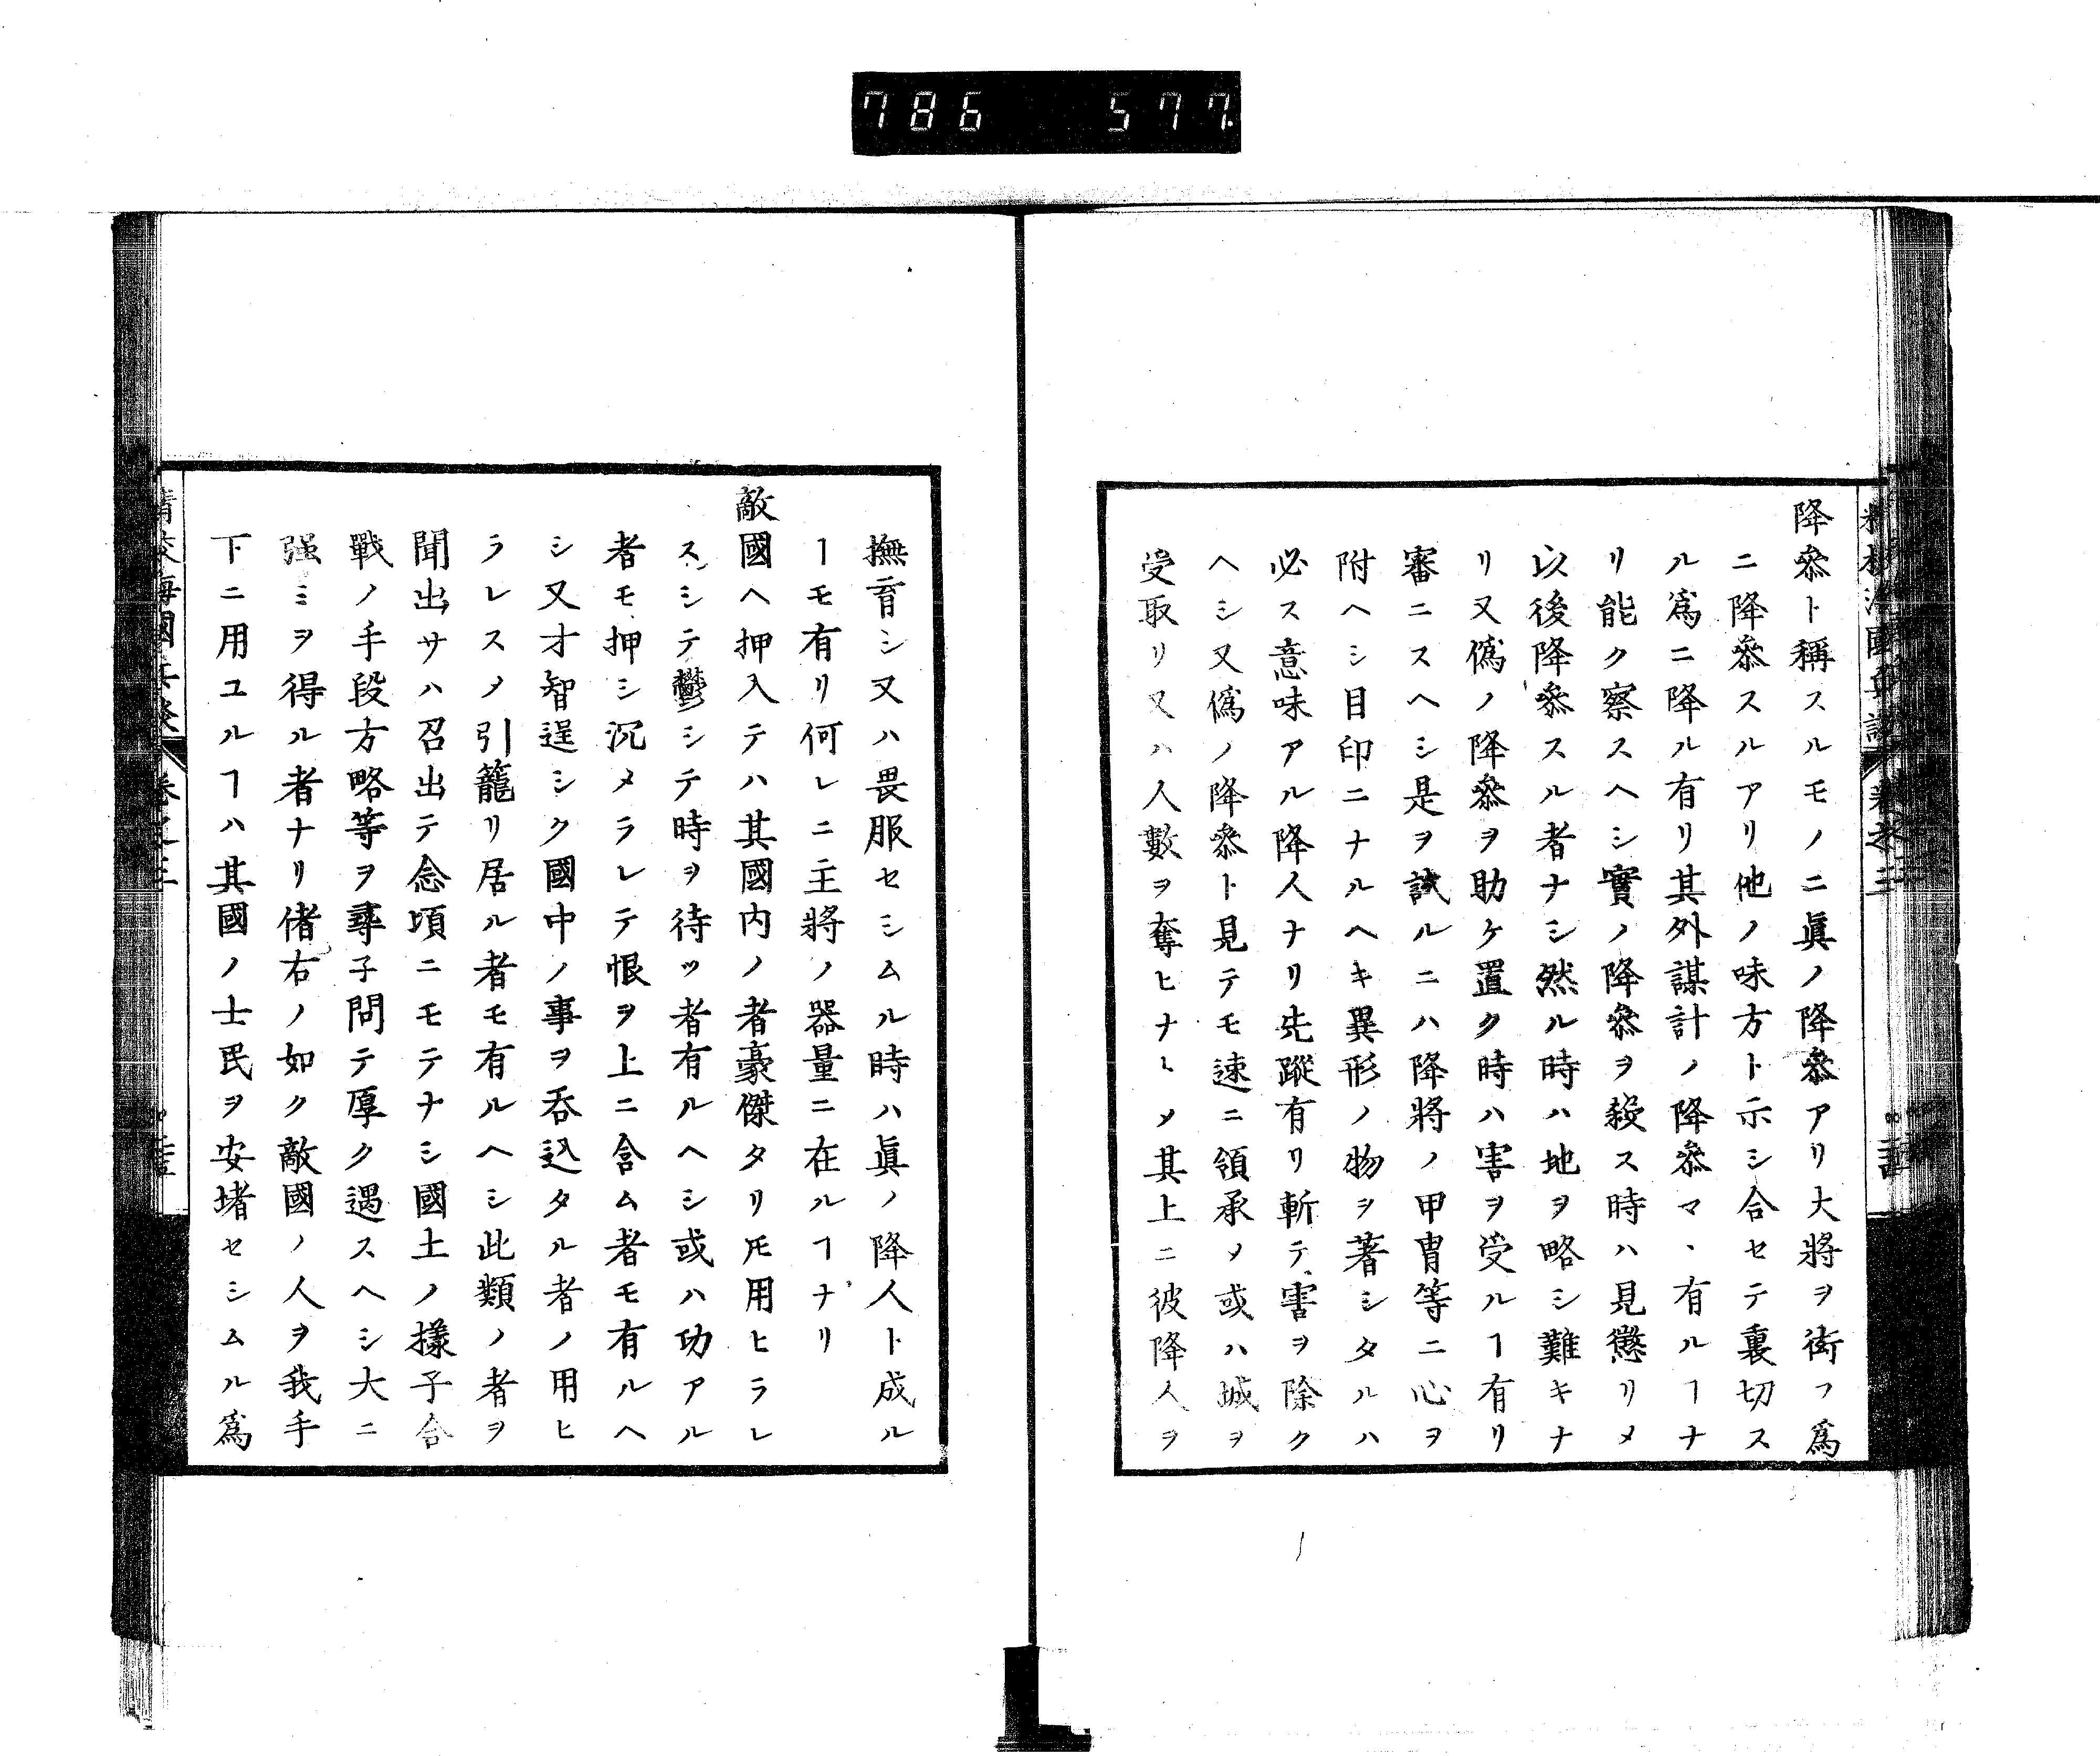 786 577
降叅ト稱スルモノニ眞ノ降叅アリ大將ヲ衒フ爲
ニ降叅スルアリ他ノ味方ト示シ合セテ裏切ス
ル爲ニ降ル有リ其外謀計ノ降叅マヽ有ルヿナ
リ能ク察スヘシ實ノ降叅ヲ殺ス時ハ見懲リメ
以後降叅スル者ナシ然ル時ハ地ヲ略シ難キナ
リ又僞ノ降叅ヲ助ケ置ク時ハ害ヲ受ルヿ有リ
審ニスヘシ是ヲ試ルニハ降將ノ甲冑等ニ心ヲ
附ヘシ目印ニナルヘキ異形ノ物ヲ著シタルハ
必ス意味アル降人ナリ先蹤有リ斬テ害ヲ除ク
ヘシ又僞ノ降叅ト見テモ速ニ領承メ或ハ城ヲ
受取リ又ハ人數ヲ奪ヒナトメ其上ニ彼降人ヲ
撫育シ又ハ畏服セシムル時ハ眞ノ降人ト成ル
ヿモ有リ何レニ主將ノ器量ニ在ルヿナリ
敵國ヘ押入テハ其國内ノ者豪傑タリ𪜈用ヒラレ
スシテ鬱シテ時ヲ待ツ者有ルヘシ或ハ功アル
者モ押シ沉メラレテ恨ヲ上ニ含ム者モ有ルヘ
シ又才智逞シク國中ノ事ヲ呑込タル者ノ用ヒ
ラレスメ引籠リ居ル者モ有ルヘシ此類ノ者ヲ
聞出サハ召出テ念頃ニモテナシ國土ノ樣子合
戰ノ手段方略等ヲ尋子問テ厚ク遇スヘシ大ニ
强ミヲ得ル者ナリ偖右ノ如ク敵國ノ人ヲ我手
下ニ用ユルヿハ其國ノ士民ヲ安堵セシムル爲
海國兵談 卷之三